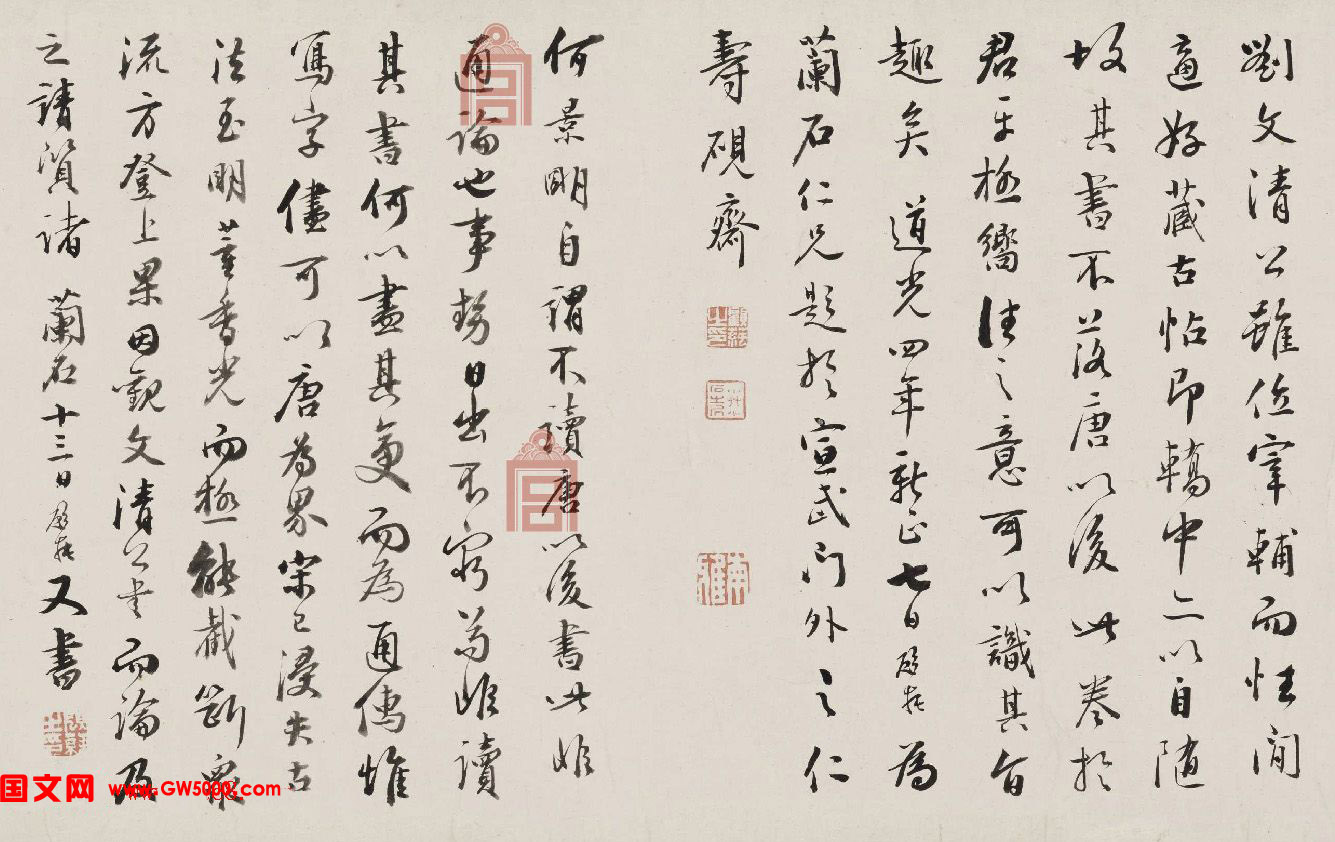 劉文清公雖位宰輔而性閒
適好藏古帖即轎中亦以自隨
故其書不落唐以後此卷於
君平極嚮往之意可以識其旨
趣矣 道光四年新正七日 為
蘭石仁兄題於宣武門外之仁
壽硯齋
何景明自謂不讀唐以後書此非
通論也事勢日出不窮若非讀
其書何以盡其變而為通儒惟
寫字儘可以唐為界宋已浸失古
法至明董香光而極能截斷眾
流方登上果因觀文清公書而論及
之請質諸 蘭石 十三日 又書
国文网 www.GW5000.com